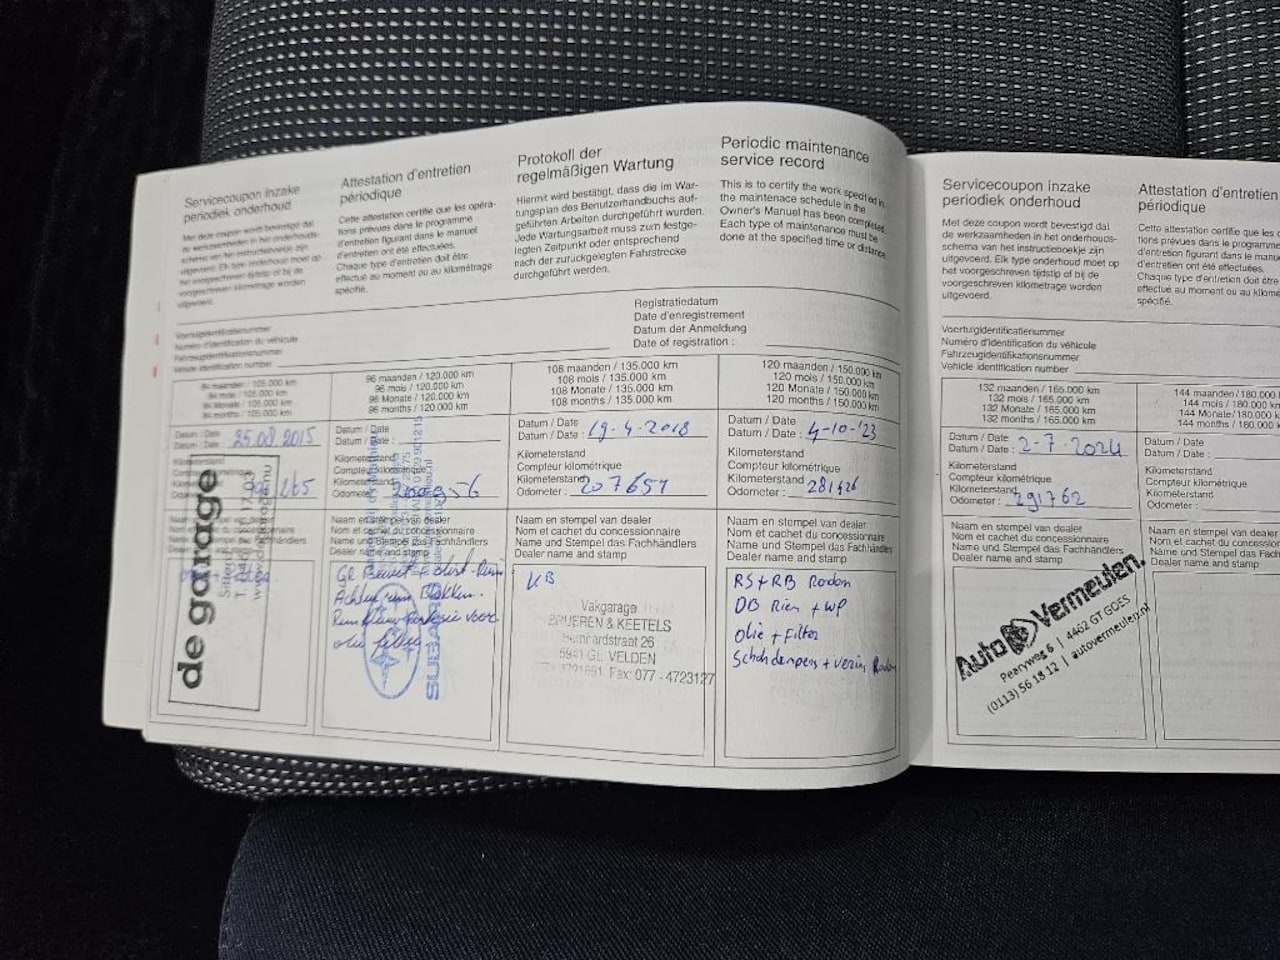 Servicecoupon inzake
periodiek onderhoud
Met deze coupon wordt bevestigd dat
de werkzaamheden in het onderhouds-
schema van het instructieboekje zijn
uitgevoerd. Elk type onderhoud moet op
het voorgeschreven tijdstip of bij de
voorgeschreven kilometrage worden
uitgevoerd.
Attestation d'entretien
périodique
Cette attestation certifie que les opéra-
tions prévues dans le programme
d'entretien figurant dans le manuel
d'entretien ont été effectuées.
Chaque type d'entretien doit être
effectué au moment ou au kilométrage
spécifié.
Protokoll der
regelmäßigen Wartung
Hiermit wird bestätigt, dass die im War-
tungsplan des Benutzerhandbuchs auf-
geführten Arbeiten durchgeführt wurden.
Jede Wartungsarbeit muss zum festge-
legten Zeitpunkt oder entsprechend
nach der zurückgelegten Fahrstrecke
durchgeführt werden.
Periodic maintenance
service record
This is to certify the work specified in
the maintenace schedule in the
Owner's Manual has been completed.
Each type of maintenance must be
done at the specified time or distance
Voertuigidentificatienummer
Numéro d'identification du véhicule
Fahrzeugidentifikationsnummer
Vehicle identification number
Registratiedatum
Date d'enregistrement
Datum der Anmeldung
Date of registration :
84 maanden / 105.000 km
84 mois / 105.000 km
84 Monate / 105.000 km
84 months / 105.000 km
Datum / Date
Datum / Date : 25.08.2015
Kilometerstand
de garage
96 maanden / 120.000 km
96 mois / 120.000 km
96 Monate / 120.000 km
96 months / 120.000 km
Datum / Date
Datum / Date :
Kilometerstand
Compteur kilométrique
Kilometerstand
Naam en stempel van dealer
Nom et cachet du concessionnaire
Name und Stempel das Fachhändlers
Dealer name and stamp
SUBARU
108 maanden / 135.000 km
108 mois / 135.000 km
108 Monate / 135.000 km
108 months / 135.000 km
Datum / Date
Datum / Date : 19-4-2018
Kilometerstand
Compteur kilométrique
Kilometerstand
Odometer : 207651
Naam en stempel van dealer
Nom et cachet du concessionnaire
Name und Stempel das Fachhändlers
Dealer name and stamp
KB
Vakgarage
BRUEREN & KEETELS
Bernardstraat 26
5941 GL VELDEN
Fax: 077 - 4723127
120 maanden / 150.000 km
120 mois / 150.000 km
120 Monate / 150.000 km
120 months / 150.000 km
Datum / Date
Datum / Date : 4-10-'23
Kilometerstand
Compteur kilométrique
Kilometerstand
Odometer : 281426
Naam en stempel van dealer
Nom et cachet du concessionnaire
Name und Stempel das Fachhändlers
Dealer name and stamp
RS + RB Roden
DB Riem + WP
Olie + Filter
Servicecoupon inzake
periodiek onderhoud
Met deze coupon wordt bevestigd dat
de werkzaamheden in het onderhouds-
schema van het instructieboekje zijn
uitgevoerd. Elk type onderhoud moet op
het voorgeschreven tijdstip of bij de
voorgeschreven kilometrage worden
uitgevoerd.
Attestation d'entretien
périodique
Cette attestation certifie que les
tions prévues dans le programme
d'entretien figurant dans le
d'entretien ont été effectuées.
Chaque type d'entretien doit être
effectué au moment ou au
spécifié.
Voertuigidentificatienummer
Numéro d'identification du véhicule
Fahrzeugidentifikationsnummer
Vehicle identification number
132 maanden / 165.000 km
132 mois / 165.000 km
132 Monate / 165.000 km
132 months / 165.000 km
Datum / Date
Datum / Date : 2-7-2024
Kilometerstand
Compteur kilométrique
Kilometerstand
Odometer : 291762
Naam en stempel van dealer
Nom et cachet du concessionnaire
Name und Stempel das Fachhändlers
Dealer name and stamp
Auto Vermeulen.
Pearyweg 6 | 4462 GT GOES
(0113) 56 18 12 | autovermeulen.nl
144 maanden / 180.000
144 mois / 180.000 k
144 Monate / 180.000 k
144 months / 180.000 k
Datum / Date
Datum / Date :
Kilometerstand
Compteur kilométrique
Kilometerstand
Odometer :
Naam en stempel van dealer
Nom et cachet du
Name und Stempel das
Dealer name and stamp